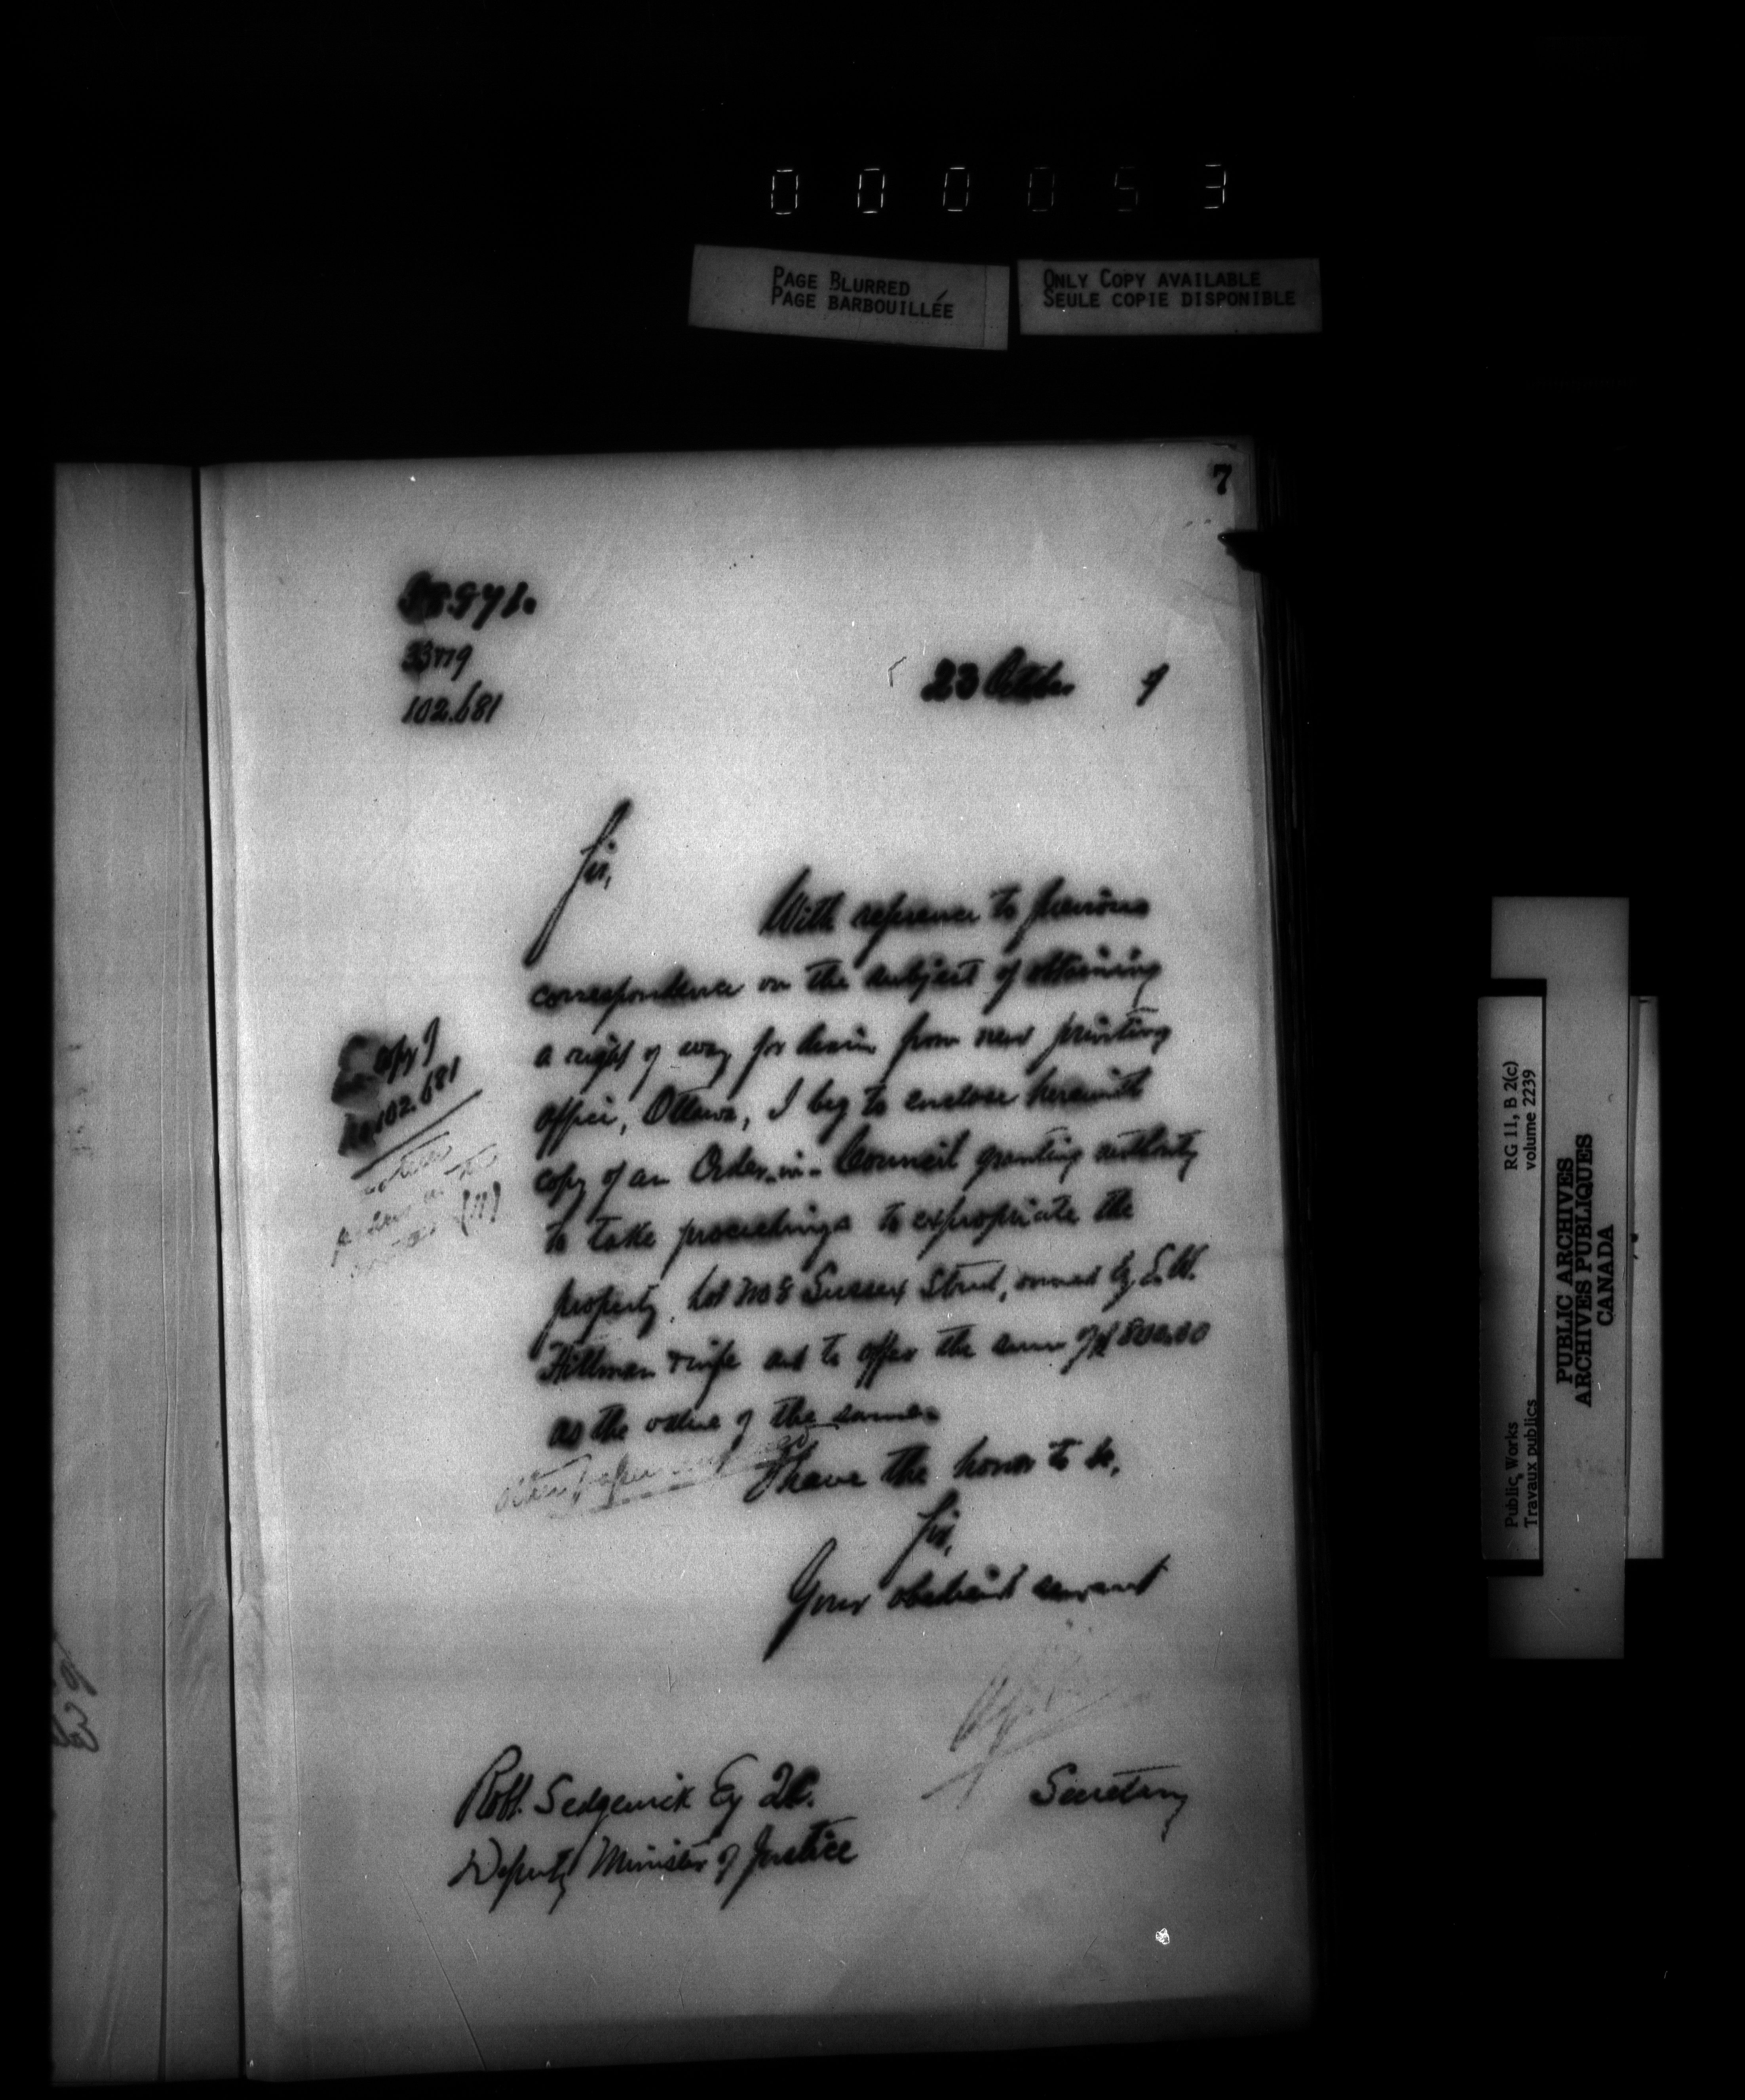 0 0 0 0 5 3
PAGE BLURRED
PAGE BARBOUILLÉE
ONLY COPY AVAILABLE
SEULE COPIE DISPONIBLE
7
102.681
23 October 9
Sir,
With reference to previous
correspondence on the subject of obtaining
a right of way for drain from new printing
office, Ottawa, I beg to enclose herewith
copy of an Order-in-Council granting authority
to take proceedings to expropriate the
property, lot No 8 Sussex Street, owned by
Hillman & wife and to offer the sum of $800.00
as the value of the same.
I have the honor to be,
Sir,
Your obedient servant
Secretary
Robt. Sedgewick Esq QC.
Deputy Minister of Justice
Copy of
No 102.681
Public Works
Travaux publics
RG 11, B 2(c)
volume 2239
PUBLIC ARCHIVES
ARCHIVES PUBLIQUES
CANADA